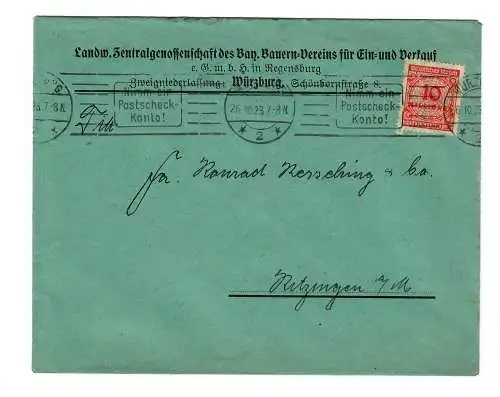 Landw. Zentralgenossenschaft des Bay. Bauern-Vereins für Ein- und Verkauf
e. G. m. b. H. in Regensburg
Zweigniederlassung: Würzburg, Schönbornstraße 8.
Nimm ein
Postscheck-
Konto!
26.10.23.7-8N.
* 2 *
Nimm ein
Postscheck-
Konto!
10
Fa. Konrad Kersching & Co.
Kitzingen a/M